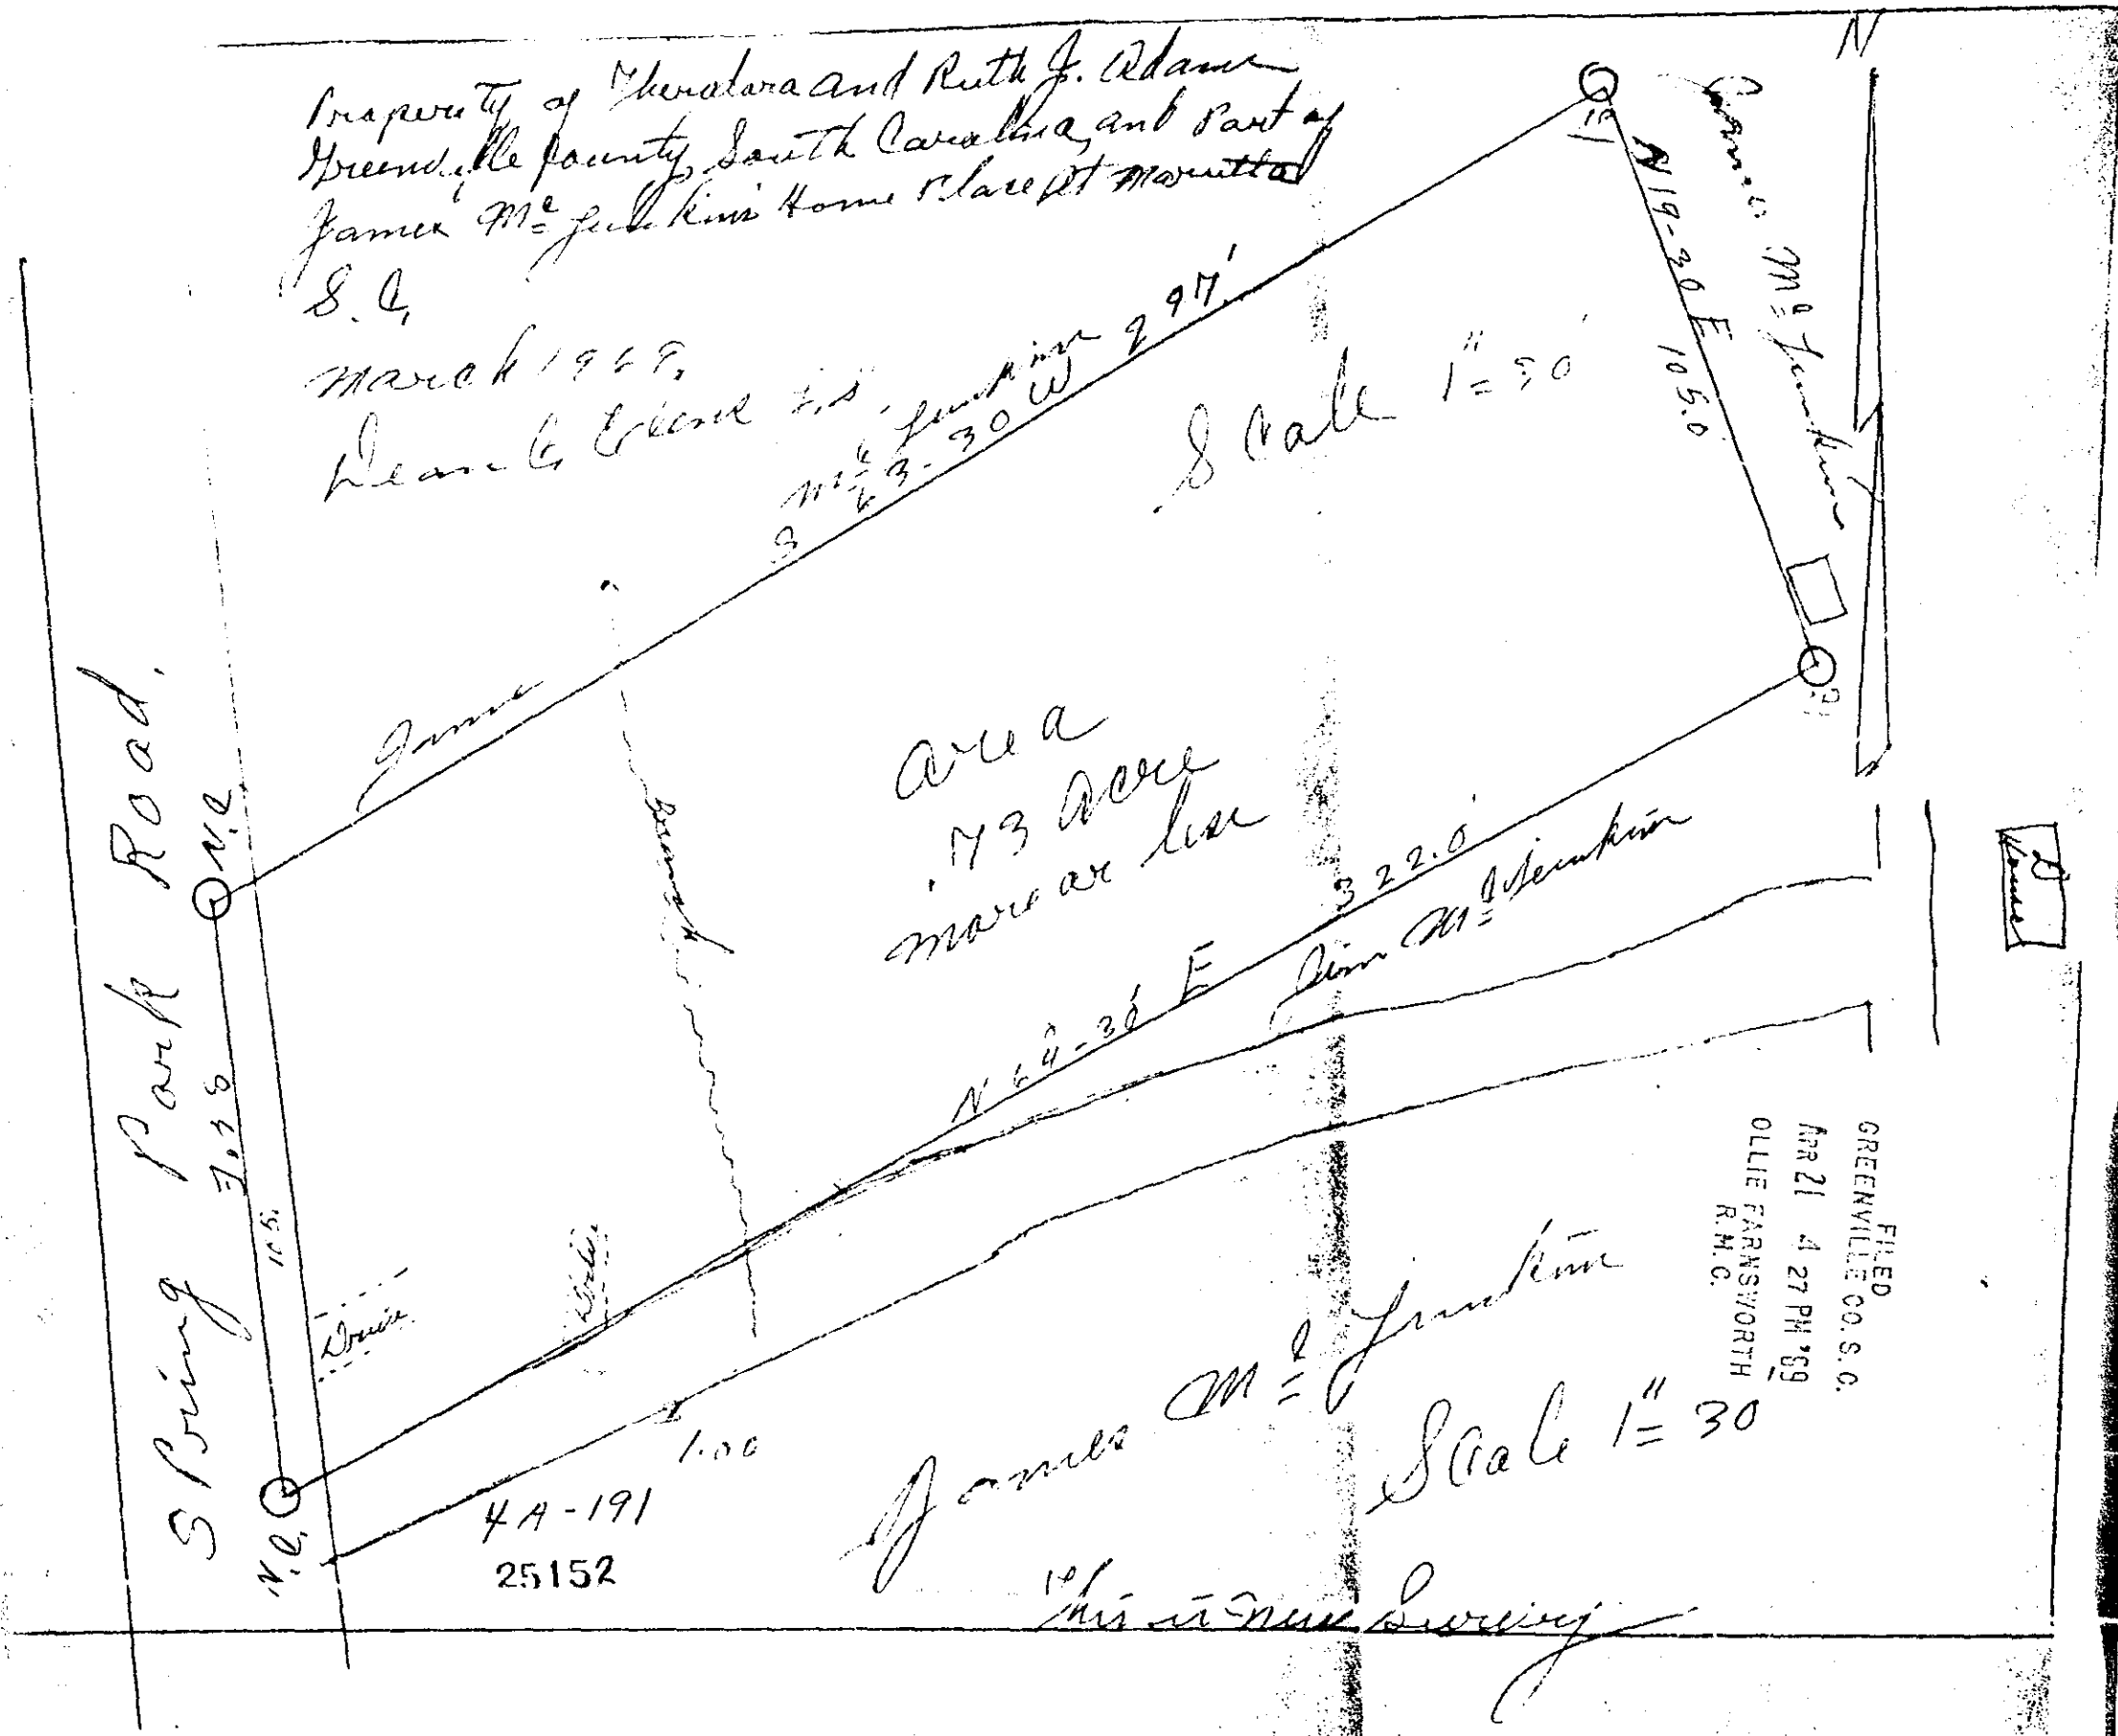 Property of and Ruth J. Adams
Greenville County, South Carolina, and Part of
James Mc Junkin Home Place At Marietta
S. C.
March 1969.
Dean C.
N
James Mc Junkin
S 63-30 W 297'
Scale 1" = 30'
N 19-30 E 105.0
James Mc Junkin
Area
.73 Acre
more or less
Branch
N 64-30 E 322.0
Jim Mc Junkin
House
Spring Park Road.
N.C.
105.
Drive
Drive
N.C.
1.00
4A-191
25152
James Mc Junkin
Scale 1" = 30
This is new Survey
FILED
GREENVILLE CO. S. C.
APR 21 4 27 PM '69
OLLIE FARNSWORTH
R.M.C.